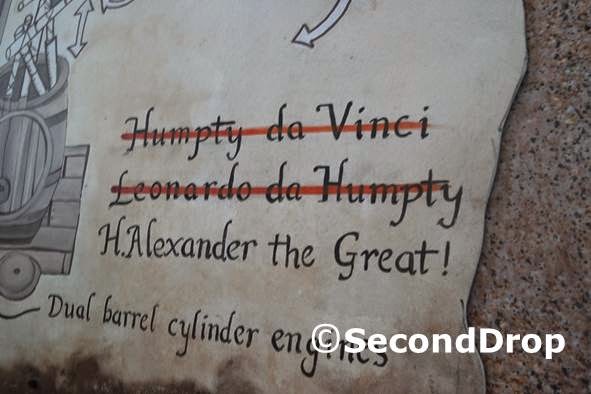 Humpty da Vinci
Leonardo da Humpty
H.Alexander the Great!
Dual barrel cylinder engines
©SecondDrop